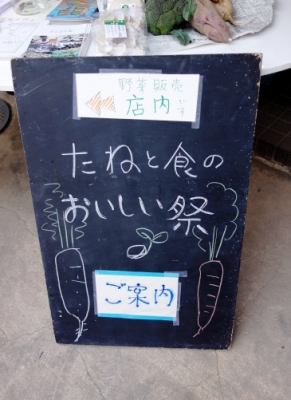 野菜販売
店内です
たねと食の
おいしい祭
ご案内